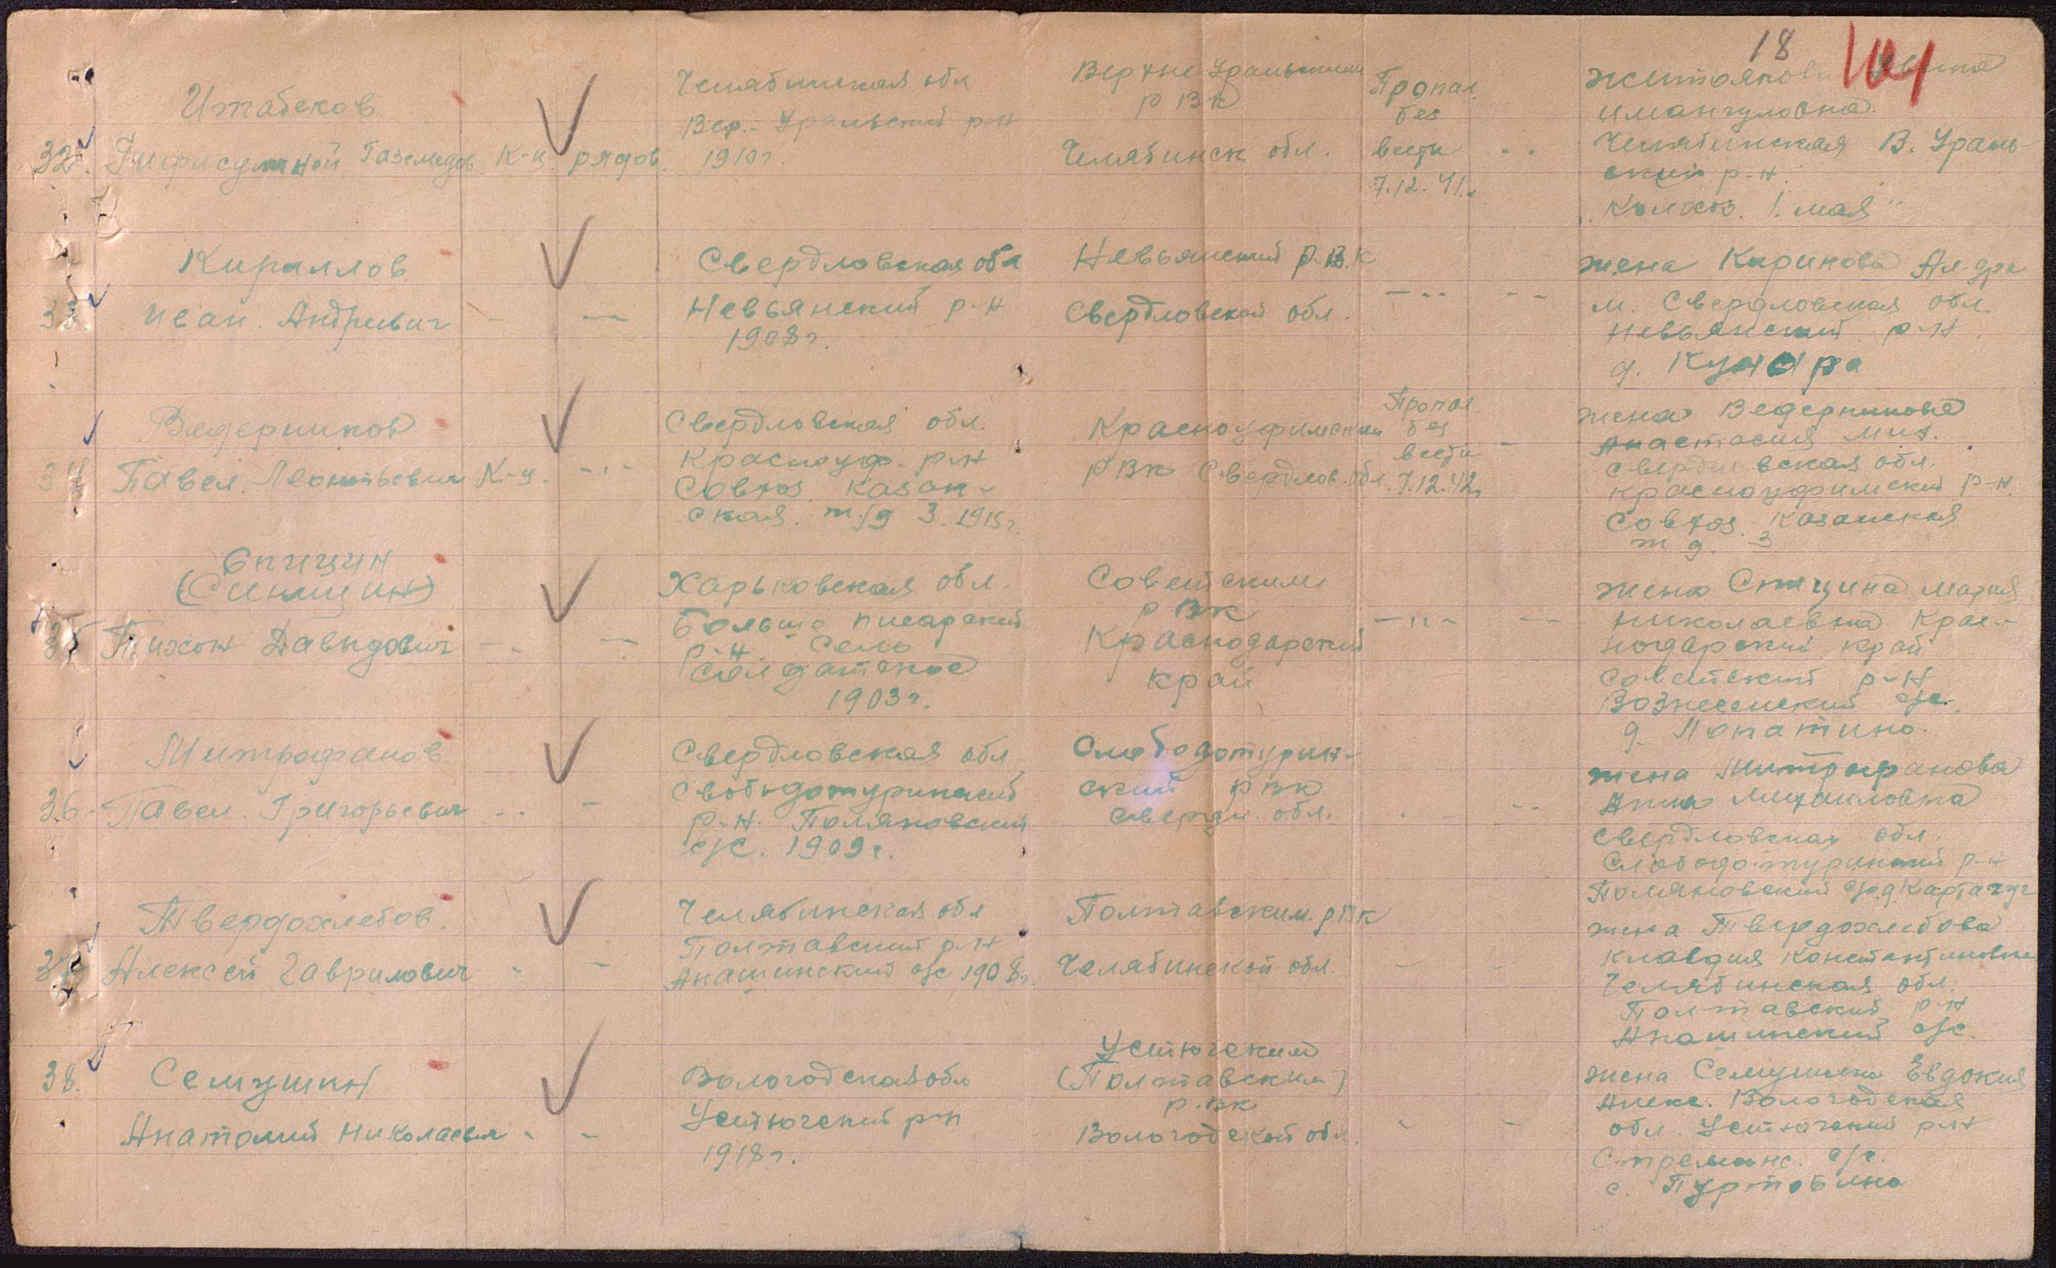 18
101
32.
Итабеков
К-ц. рядов.
Челябинская обл
Вер.-Уральский р-н
1910г.
Верхне Уральским
РВК
Челябинск обл.
Пропал
без
вести
7.12.41г.
имангуловна
Челябинская В. Ураль-
ский р-н.
"Колхоз. 1. мая"
33
Кираллов
Иван. Андревич
Свердловская обл
Невьянский р-н
1908г.
Невьянский Р.В.К
Свердловской обл.
-"-
жена Кирилова Ал-дра
м. Свердловская обл.
Невьянский р-н.
д. Кунара
34
Ведерников
Павел. Леонтьевич К-ц. -"-
Свердловская обл.
Красноуф. р-н
Совхоз. Казак-
ская. т/д 3. 1915г.
Красноуфимским
РВК Свердлов. обл.
Пропал
без
вести
7.12.42г
жена Ведерникова
Анастасия Мих.
Свердловская обл.
Красноуфимский р-н.
Совхоз. Казанская
т д. 3
35
Спицин
(Синицин)
Тихон Давыдович
Харьковская обл.
Больше писарский
р-н Село
Солдатское
1903г.
Советским
РВК
Краснодарский
край
-"-
жена Спицина Мария
Николаевна Крас-
нодарский край
Советский р-н
Вознесенский с/с.
д. Лопатино.
36.
Митрофанов
Павел. Григорьевич
Свердловская обл
Свободотуринский
р-н. Поляновский
с/с. 1909г.
Слободотурин-
ский РВК
Свердл. обл.
жена Митрофанова
Анна Михайловна
Свердловская обл.
Слободотуринский р-н
Поляновский с/с.
37
Твердохлебов.
Алексей Гаврилович
Челябинская обл
Полтавский р-н
Анашинский с/с 1908г.
Полтавским. РВК
Челябинской обл.
жена Твердохлебова
Клавдия Константиновна
Челябинская обл.
Полтавский р-н
Анашинский с/с.
38.
Семушин
Анатолий Николаевич
Вологодская обл
Устюгский р-н
1918г.
Устюгским
(Полтавским)
РВК
Вологодской обл.
жена Семушина Евдокия
Алекс. Вологодская
обл. Устюгский р-н
с/с.